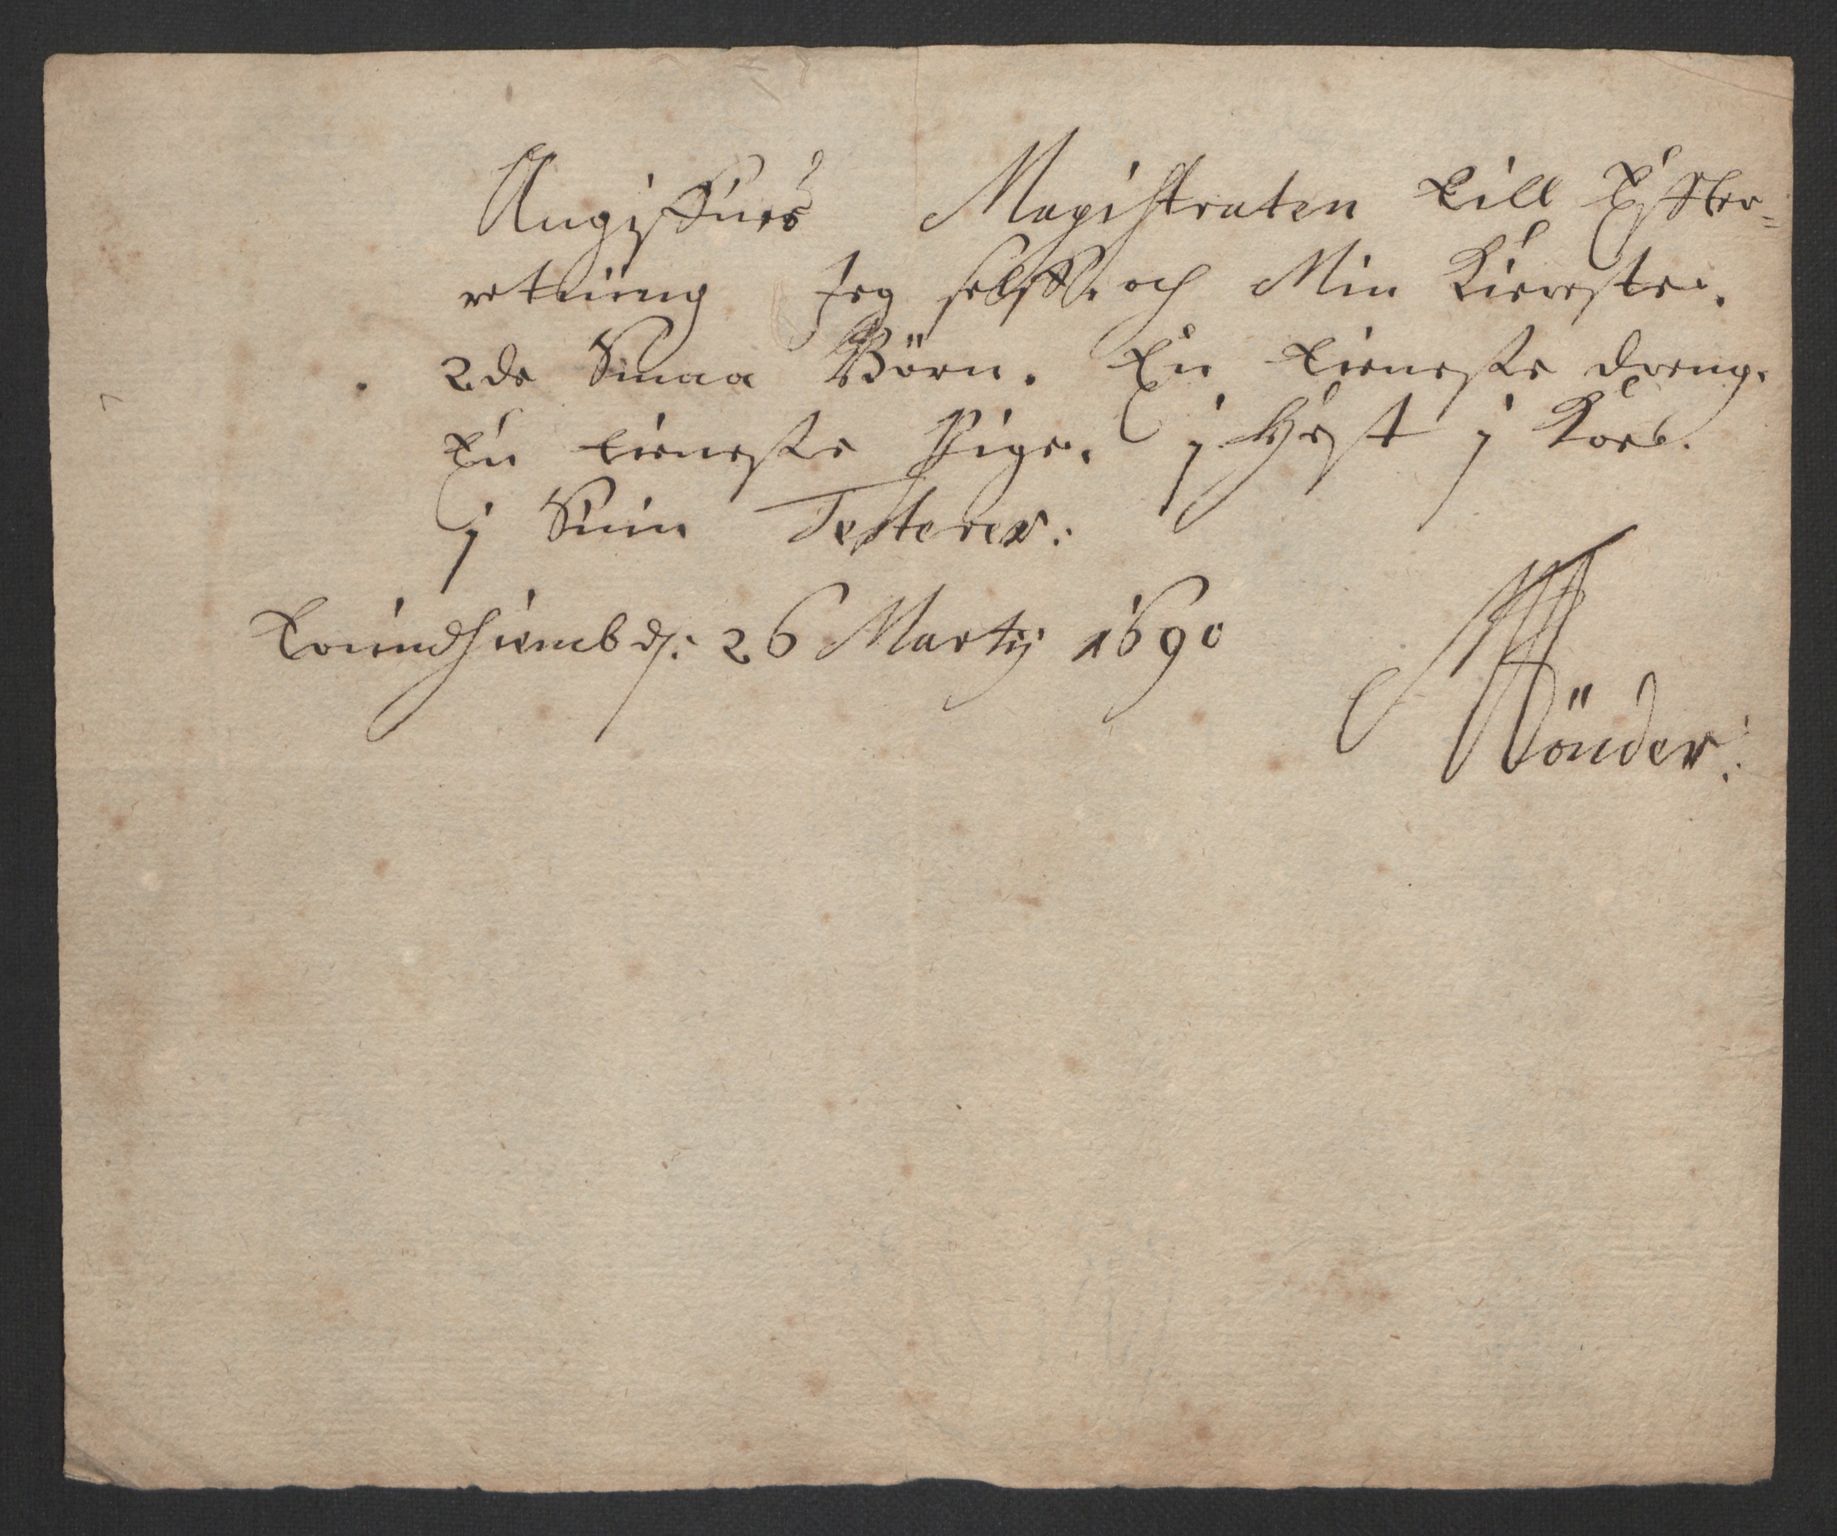 Angiffues Magistraten till Effter=
retning Jeg selff. och Min Kiereste.
2de Smaa Börn. En tieneste dreng.
En tieneste Pige. j Hest j Koe.
j Suin Testerer.
Trundhiemb d. 26 Martij 1690
Tönder.